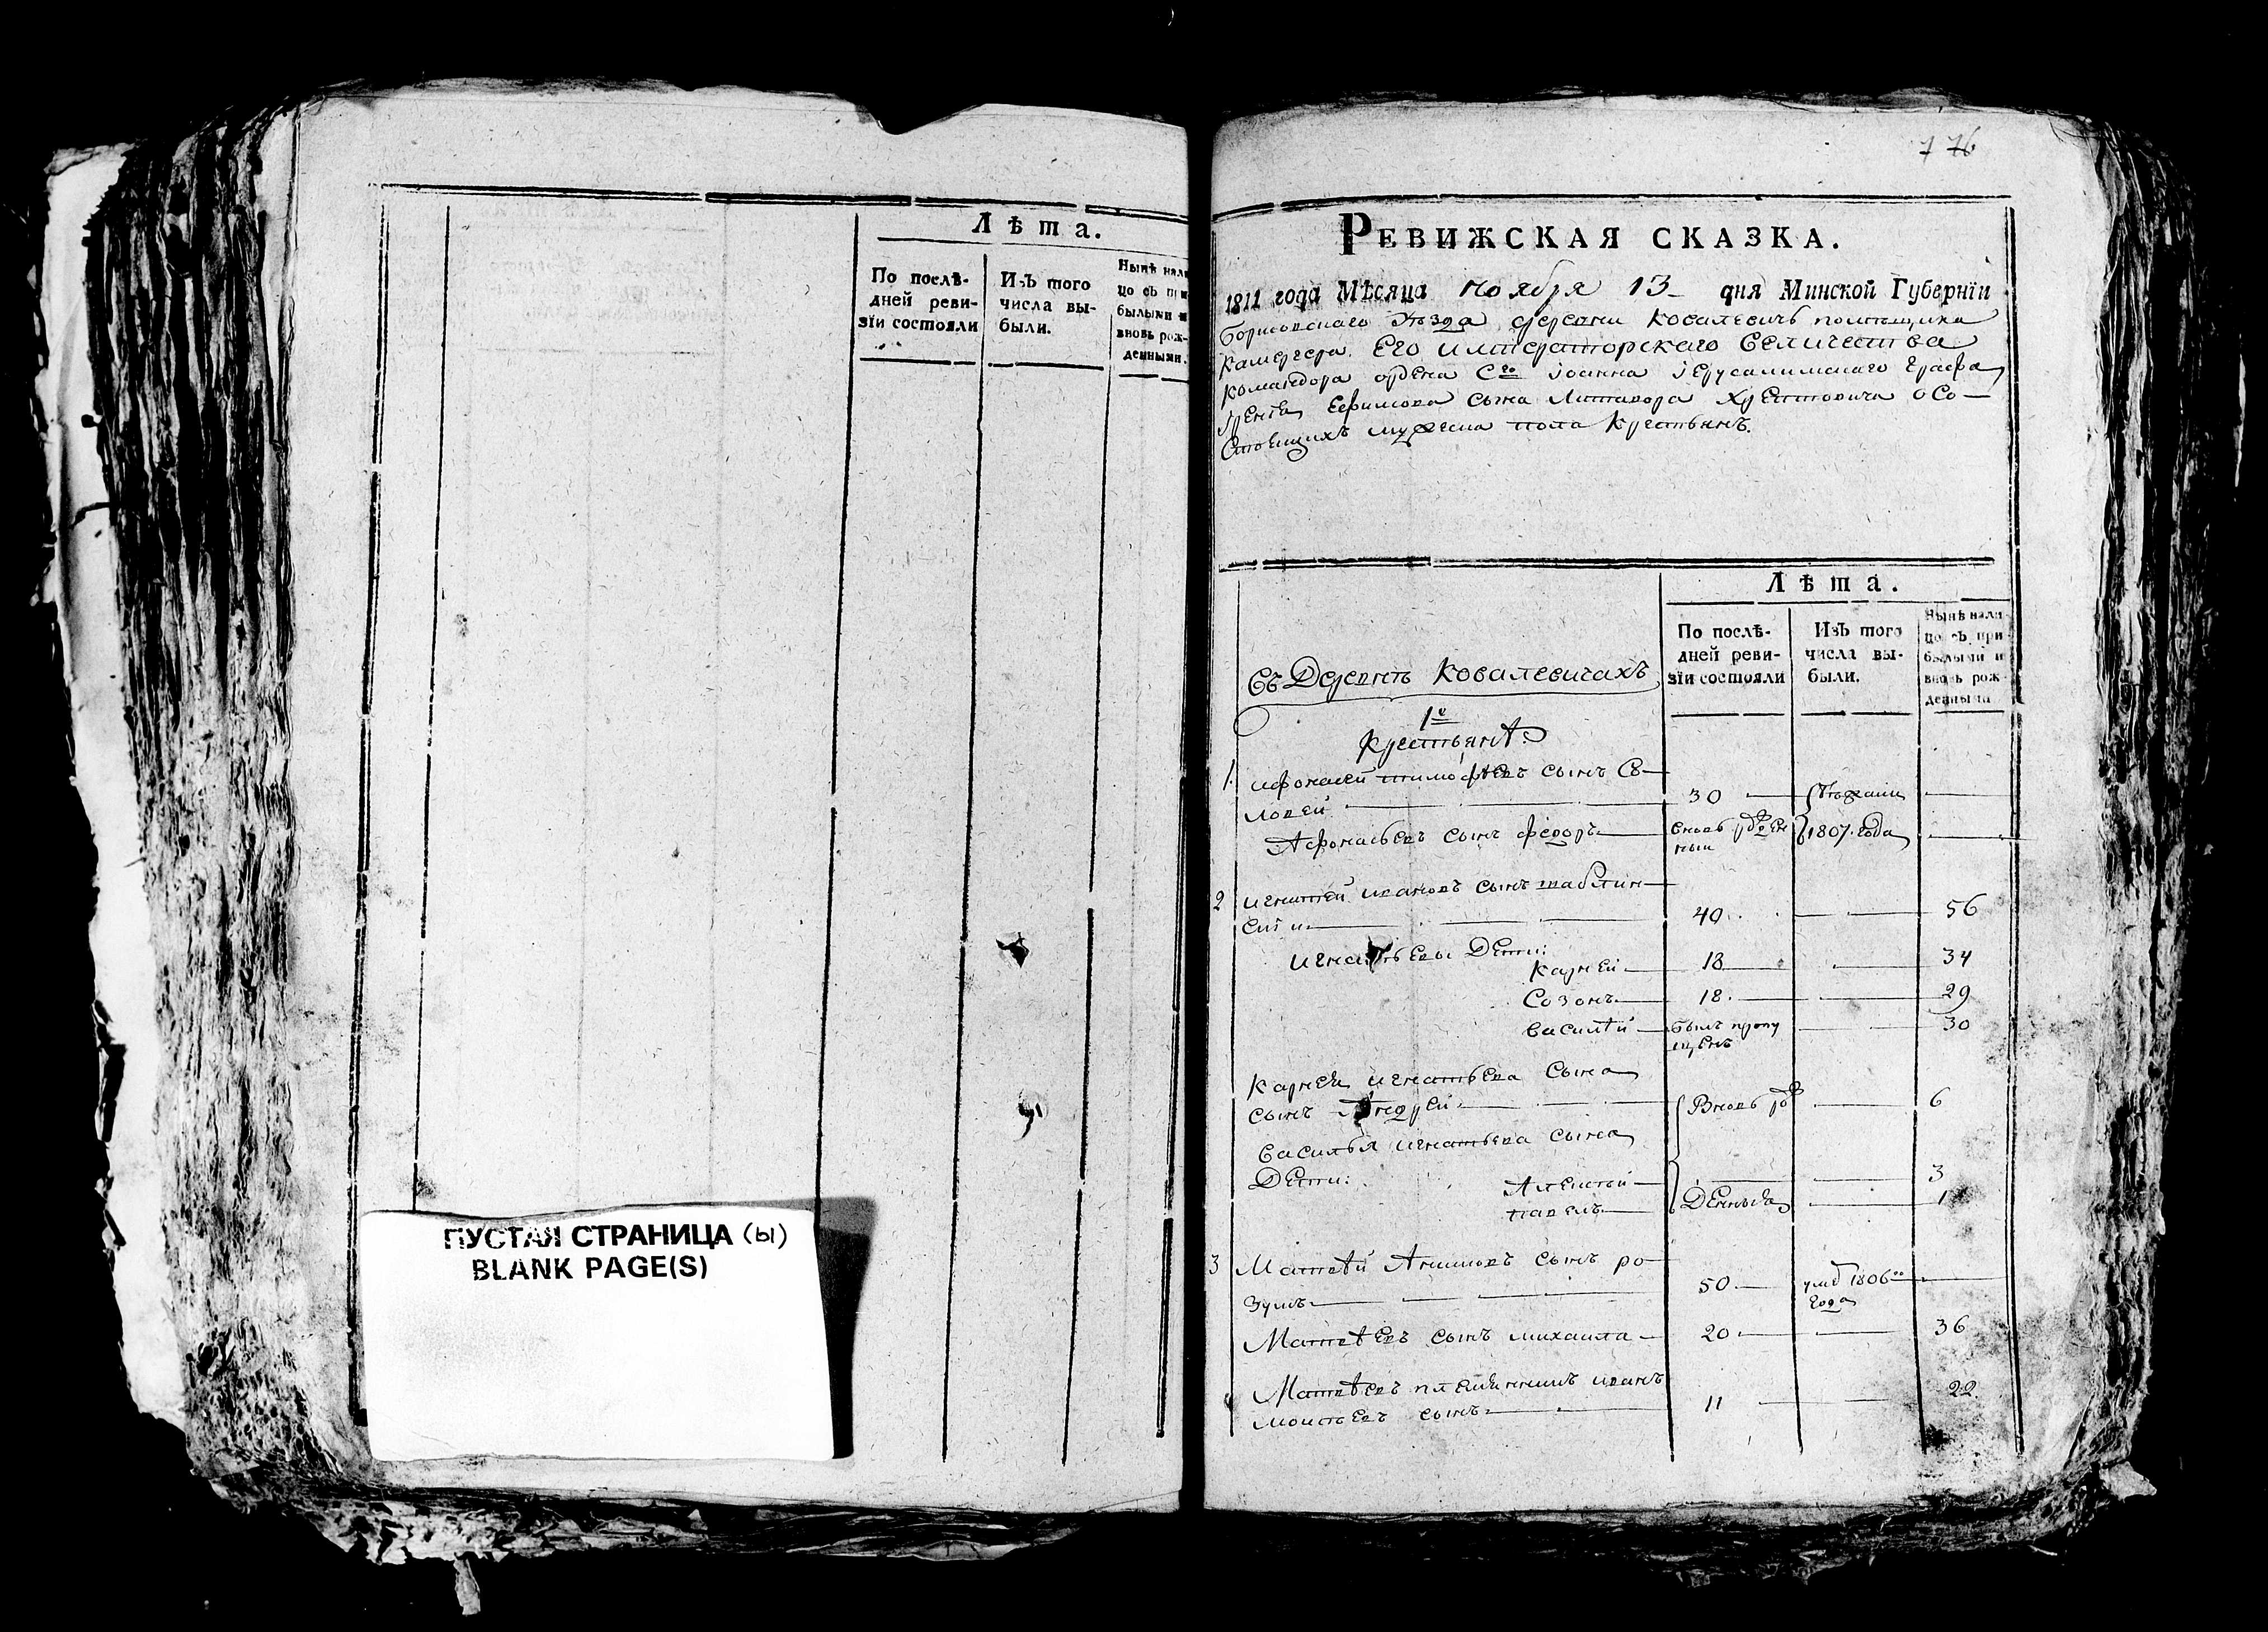 Лѣта.
По послѣ-
дней реви-
зіи состояли
Изъ того
числа вы-
были.
Нынѣ нали
цо съ при
былыми и
вновь рож-
денными.
ПУСТАЯ СТРАНИЦА (ы)
BLANK PAGE(S)
7 76
РЕВИЖСКАЯ СКАЗКА.
1811 года Мѣсяца ноября 13 дня Минской Губерніи
Борисовскаго уѣзда деревни Ковалевичъ помещика
Камергера Его Императорскаго Величества
Командора ордена Сго Іоанна Іерусалимскаго Графа
Ефимова сына Литавора Хрептовича о Со-
стоящихъ мужеска пола Крестьянъ.
Лѣта.
По послѣ-
дней реви-
зіи состояли
Изъ того
числа вы-
были.
Нынѣ нали-
цо съ при-
былыми и
вновь рож-
денными
Въ Деревнѣ Ковалевичахъ
1е
Крестьянѣ:
1. Афонасей тимофѣевъ сынъ Со-
ловей 30 бѣжали
Афонасьевъ сынъ федоръ вновь рожден
ныи 1807. года
2 игнатей ивановъ сынъ
40. 56
игнатьевы Дети:
Карней 18 34
Созонъ 18. 29
василѣй былъ пропу 30
щенъ
Карнея игнатьева сына
сынъ Андрей Вновь рож 6
василья игнатьева сына
Дети: Алексѣй 3
павелъ Денныя 1
3 Матвѣй Акимовъ сынъ ро-
зумъ 50 умѣ 1806го
года
Матвѣевъ сынъ михаила 20 36
Матвѣевъ племянникъ иванъ
моисѣевъ сынъ 11 22